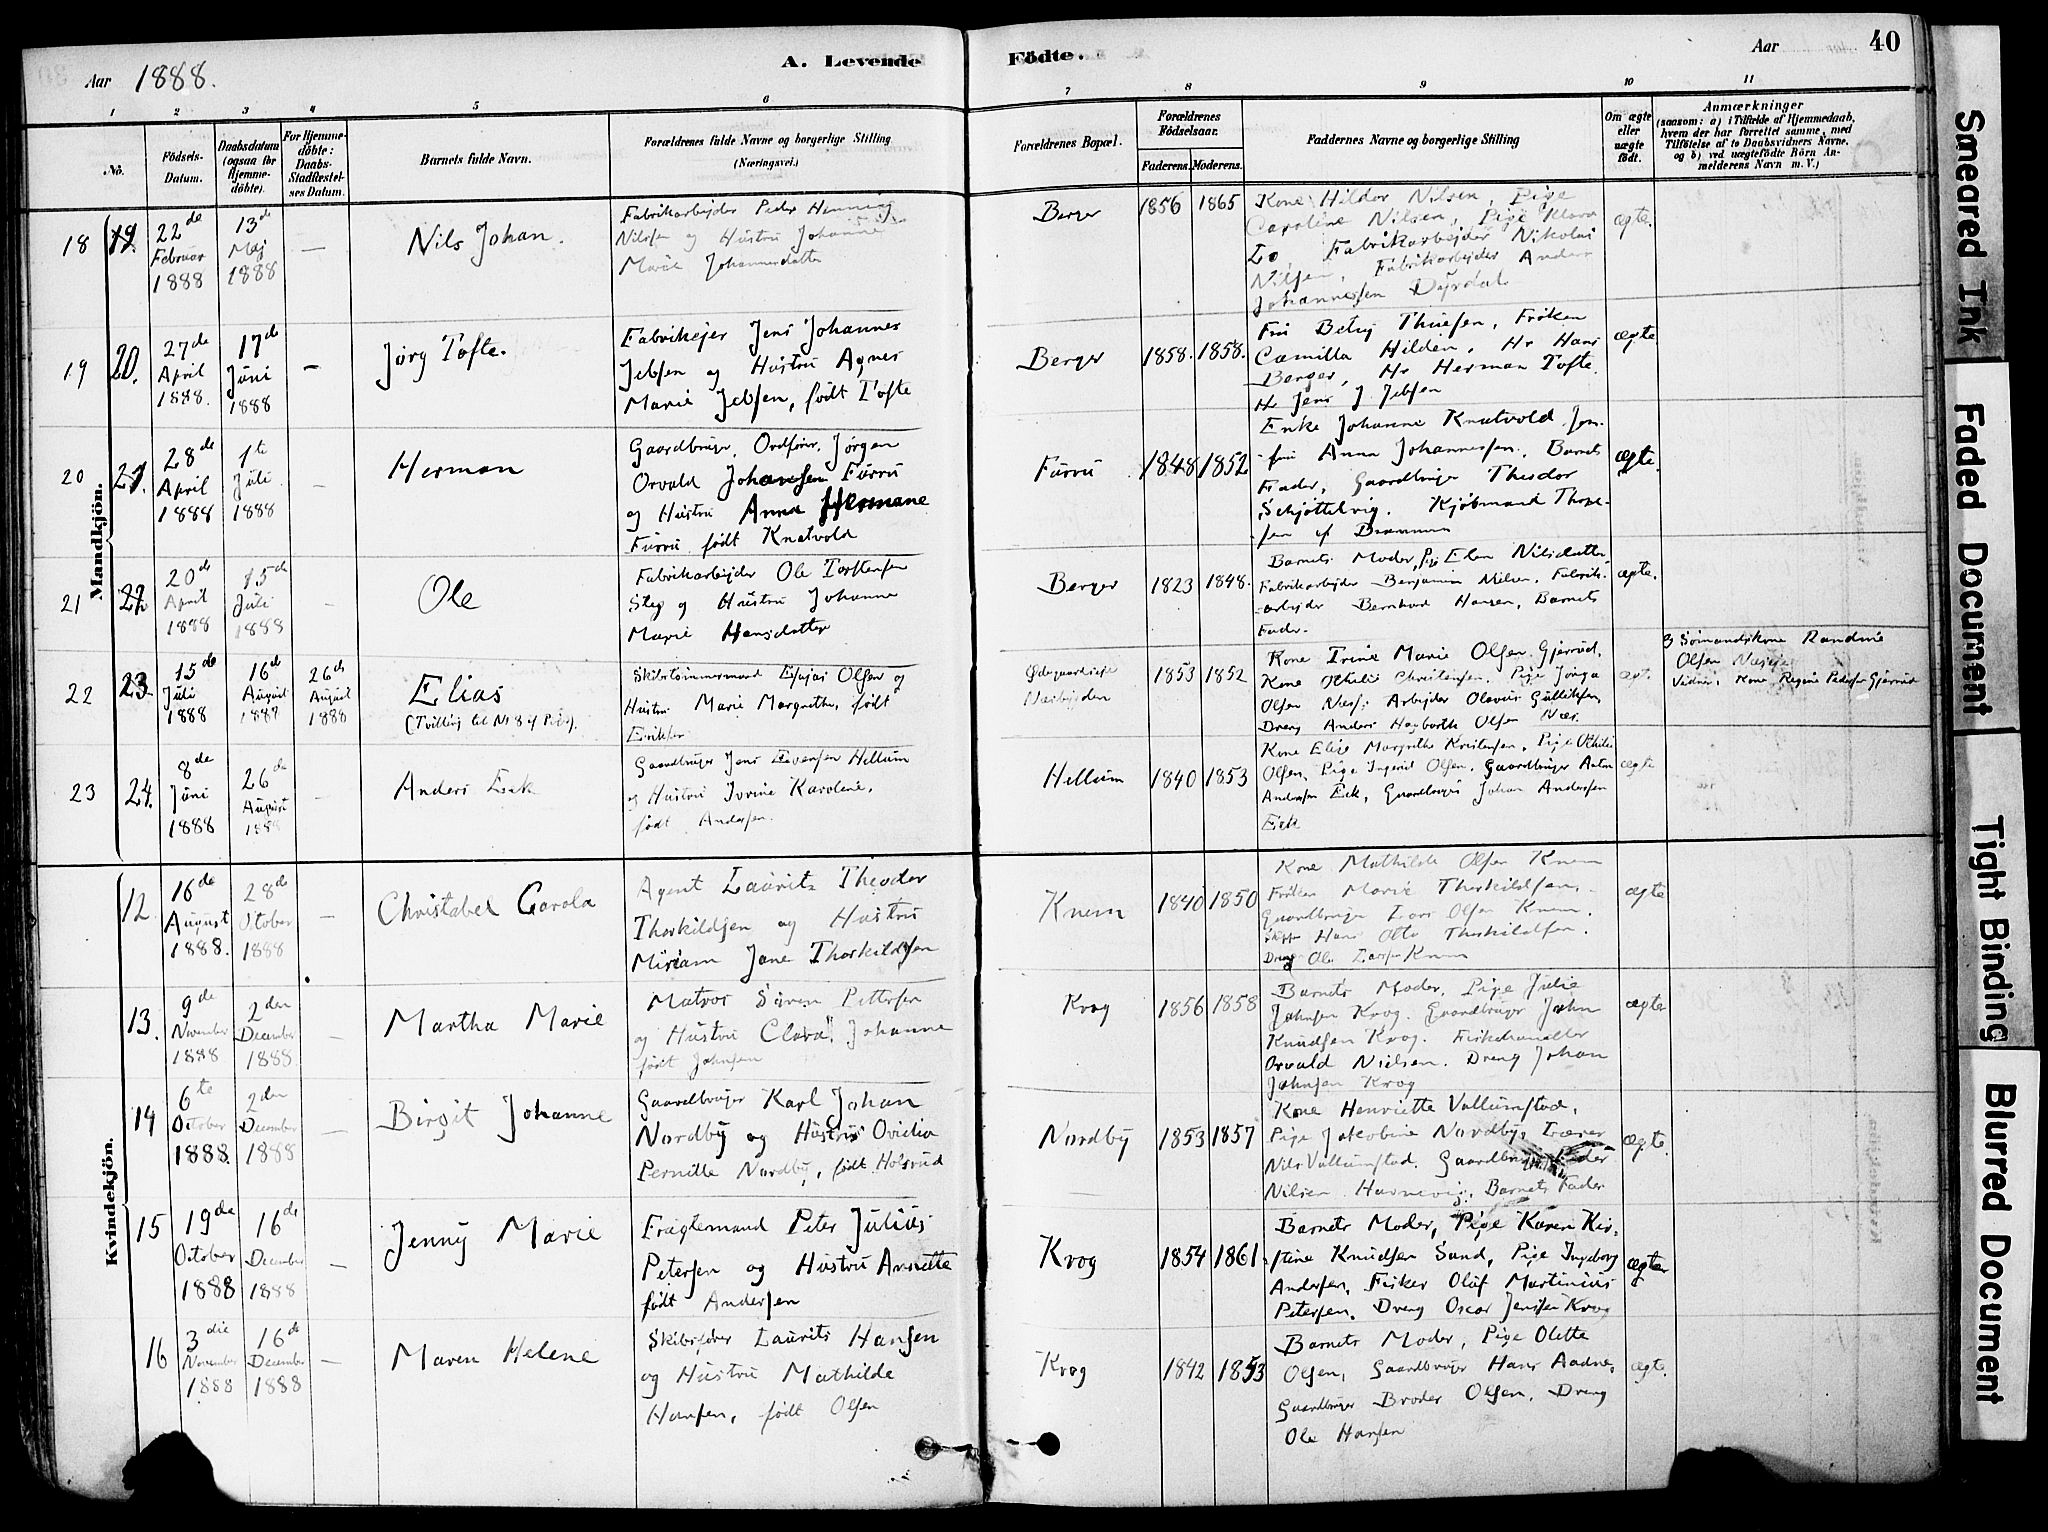 Aar 1888.
A. Levende
Födte.
Aar
40
1
2
3
4
5
6
7
8
9
10
11
No.
Födsels-
Datum.
Daabsdatum
(ogsaa for
Hjemme-
döbte).
For Hjemme-
döbte:
Daabs-
Stadfæstel-
ses Datum.
Barnets fulde Navn.
Forældrenes fulde Navne og borgerlige Stilling
(Næringsvei.)
Forældrenes Bopæl.
Forældrenes
Födselsaar.
Faderens.
Moderens.
Faddernes Navne og borgerlige Stilling
Om ægte
eller
uægte
födt.
Anmærkninger
(saasom: a) i Tilfælde af Hjemmedaab,
hvem der har forrettet samme, med
Tilföielse af to Daabsvidners Navne.
og b) ved uægtefödte Börn An-
melderens Navn m. V.)
Mandkjön.
18 19.
22de
Februar
1888
13de
Maj
1888
—
Nils Johan.
Fabrikarbejder Peder Henning
Nilssen og Hustru Johanne
Marie Johannesdatter
Berger
1856
1865
Kone Hilder Nilsen, Pige
Caroline Nilsen, Pige Klara
Lo, Fabrikarbejder Nikolai
Nilsen, Fabrikarbejder Anders
Johannesen Dyrdal.
ægte.
19 20.
27de
April
1888.
17de
Juni
1888
—
Jörg Tofte.
Fabrikejer Jens Johannes
Jebsen og Hustru Agnes
Marie Jebsen, født Tofte
Berger
1858.
1858.
Fru Betzy Thuesen, Frøken
Camilla Hilden, Hr Hans
Berger, Hr Herman Tofte.
Hr Jens J. Jebsen
ægte
20 21.
28de
April
1888
1te
Juli
1888
Herman
Gaardbruger, Ordfører, Jørgen
Orvald Johansen Furru
og Hustru Anna Hermane
Furru, født Knatvold
Furru
1848
1852
Enke Johanne Knatvold. Jom-
fru Anna Johannessen, Barnets
Fader, Gaardbruger Theodor
Schjøttelvig. Kjøbmand
Drammen
ægte.
21 22.
20de
April
1888
15de
Juli
1888
Ole
Fabrikarbejder Ole Torstensen
Steg og Hustru Johanne
Marie Hansdatter
Berger
1823
1848.
Barnets Moder, Pige Elen Nilsdatter
Fabrikarbejder Benjamin Nilsen, Fabrik-
arbejder Bernhard Hansen, Barnets
Fader.
ægte.
22 23.
15de
Juli
1888
16de
August
1888
26de
August
1888
Elias
(Tvilling til No 8 af Piger).
Skibstømmermand Esajas Olsen og
Hustru Marie Margrethe, født
Eriksen
1853
1852
Kone Irine Marie Olsen Gjerrud,
Kone Othilie Christensen, Pige Jonga
Olsen Næs, Arbejder Olavus Gulliksen,
Dreng Anders Hagbarth Olsen Næs.
ægt.
Sømandskone Randine
Olsen
Vidner, Kone Regine Pedersen Gjerrud
23 24.
8de
Juni
1888
26de
August
1888
Anders Eek
Gaardbruger Jens Evensen Hellum
og Hustru Jorine Karoline,
født Andersen.
Hellum
1840
1853
Kone Elise Margrethe Kristensen, Pige Othilie
Olsen, Pige Ingerid Olsen, Gaardbruger Anton
Andersen Eek, Gaardbruger Johan Andersen
Eek
ægte
Kvindekjön.
12.
16de
August
1888.
28de
October
1888
—
Christabel Carola
Agent Laurits Theodor
Thorkildsen og Hustru
Miriam Jane Thorkildsen
Knem
1840
1850
Kone Mathilde Olsen Knem
Frøken Marie Thorkildsen,
Gaardbruger Lars Olsen Knem.
Hans Otto Thorkildsen.
Dreng Ole Larsen Knem
ægte
13.
9de
November
1888
2den
December
1888
—
Martha Marie
Matros Søren Pettersen
og Hustru Clara Johanne
født Johnsen
Krog
1856
1858
Barnets Moder, Pige Julie
Johnsen Krog. Gaardbruger John
Knudsen Krog. Fiskehandler
Orvald Nielsen. Dreng Johan
Johnsen Krog
ægte
14
6te
October
1888.
2den
December
1888
—
Birgit Johanne
Gaardbruger Karl Johan
Nordby og Hustru Ovidia
Pernille Nordby, født Holsrud
Nordby
1853
1857
Kone Henriette Vallumstad,
Pige Jakobine Nordby, Lærer
Nils Vallumstad. Gaardbruger Peder
Nilsen Havnevig, Barnets Fader
ægte.
15
19de
October
1888
16de
December
1888
—
Jenny Marie
Fragtemand Peter Julius
Petersen og Hustru Annette
født Andersen
Krog
1854
1861
Barnets Moder, Pige Karen Kir-
stine Knudsen Sand, Pige Ingeborg
Andersen, Fisker Oluf Martinius
Petersen, Dreng Oscar Jensen Krog
ægte
16
3die
November
1888
16de
December
1888
—
Maren Helene
Skibsfører Laurits Hansen
og Hustru Mathilde
Hansen, født Olsen
Krog
1842
1853
Barnets Moder, Pige Olette
Olsen, Gaardbruger Hans Aadne,
Gaardbruger Broder Olsen, Dreng
Ole Hansen
ægte.
Smeared Ink
Faded Document
Tight Binding
Blurred Document